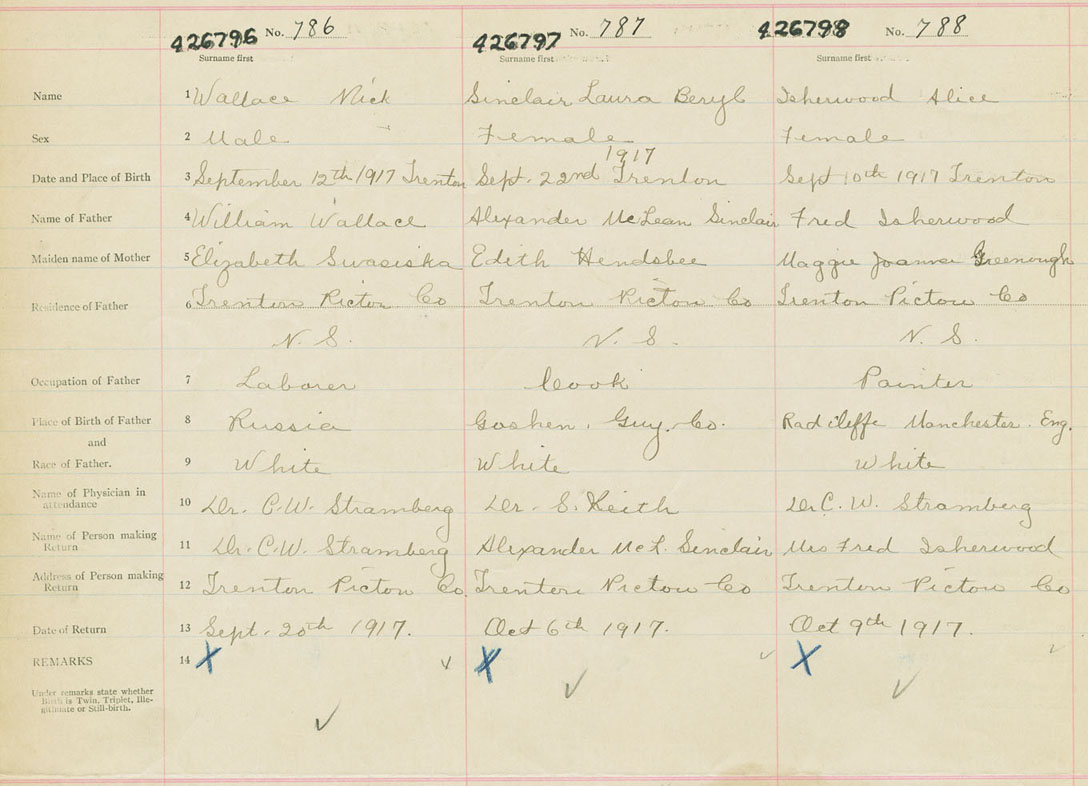 426796 No. 786 426797 No. 787 426798 No. 788
Surname first Surname first Surname first
Name 1 Wallace Nick Sinclair Laura Beryl Isherwood Alice
Sex 2 Male Female Female
1917
Date and Place of Birth 3 September 12th 1917 Trenton Sept. 22nd Trenton Sept 10th 1917 Trenton
Name of Father 4 William Wallace Alexander McLean Sinclair Fred Isherwood
Maiden name of Mother 5 Elizabeth Swasiska Edith Hendsbee Maggie Joanna Greenough
Residence of Father 6 Trenton Pictou Co Trenton Pictou Co Trenton Pictou Co
N. S. N. S. N. S.
Occupation of Father 7 Laborer Cook Painter
Place of Birth of Father 8 Russia Goshen, Guy. Co. Radcliffe Manchester. Eng.
and
Race of Father. 9 White White White
Name of Physician in
attendance 10 Dr. C. W. Stramberg Dr. S. Keith Dr C. W. Stramberg
Name of Person making
Return 11 Dr. C. W. Stramberg Alexander McL. Sinclair Mrs Fred Isherwood
Address of Person making
Return 12 Trenton Pictou Co. Trenton Pictou Co Trenton Pictou Co
Date of Return 13 Sept. 20th 1917. Oct 6th 1917. Oct 9th 1917.
REMARKS 14 X X X
Under remarks state whether
Birth is Twin, Triplet, Ille-
gitimate or Still-birth.